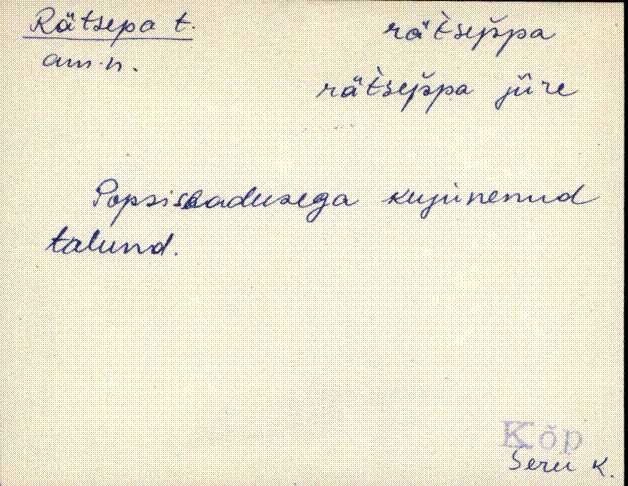 Rätsepa t. rät̀sep̆pa
am.n. rät̀sep̆pa jüre
Popsiseadusega kujunenud
talund.
Kõp
Seru K.